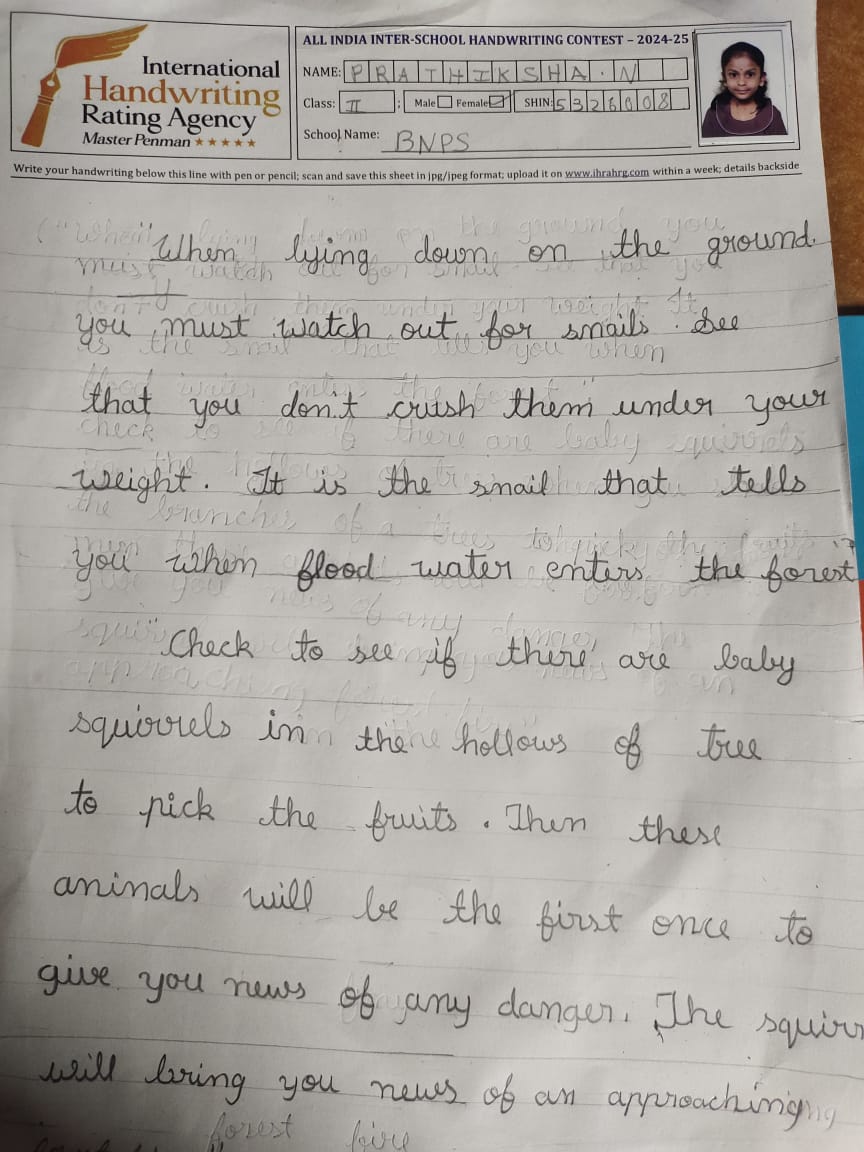 International
Handwriting
Rating Agency
Master Penman
ALL INDIA INTER-SCHOOL HANDWRITING CONTEST – 2024-25
NAME: PRATHIKSHA.N
Class: II : Male Female SHIN: 5326608
School Name: BNPS
Write your handwriting below this line with pen or pencil; scan and save this sheet in jpg/jpeg format; upload it on www.ihrahrg.com within a week; details backside
"When lying down on the ground
you must watch out for snails. See
that you don't crush them under your
weight. It is the snail that tells
you when flood water enters the forest"
"Check to see if there are baby
squirrels in the hollows of tree
to pick the fruits. Then these
aninals will be the first once to
give you news of any danger. The squirr
will bring you news of an approaching
forest fire